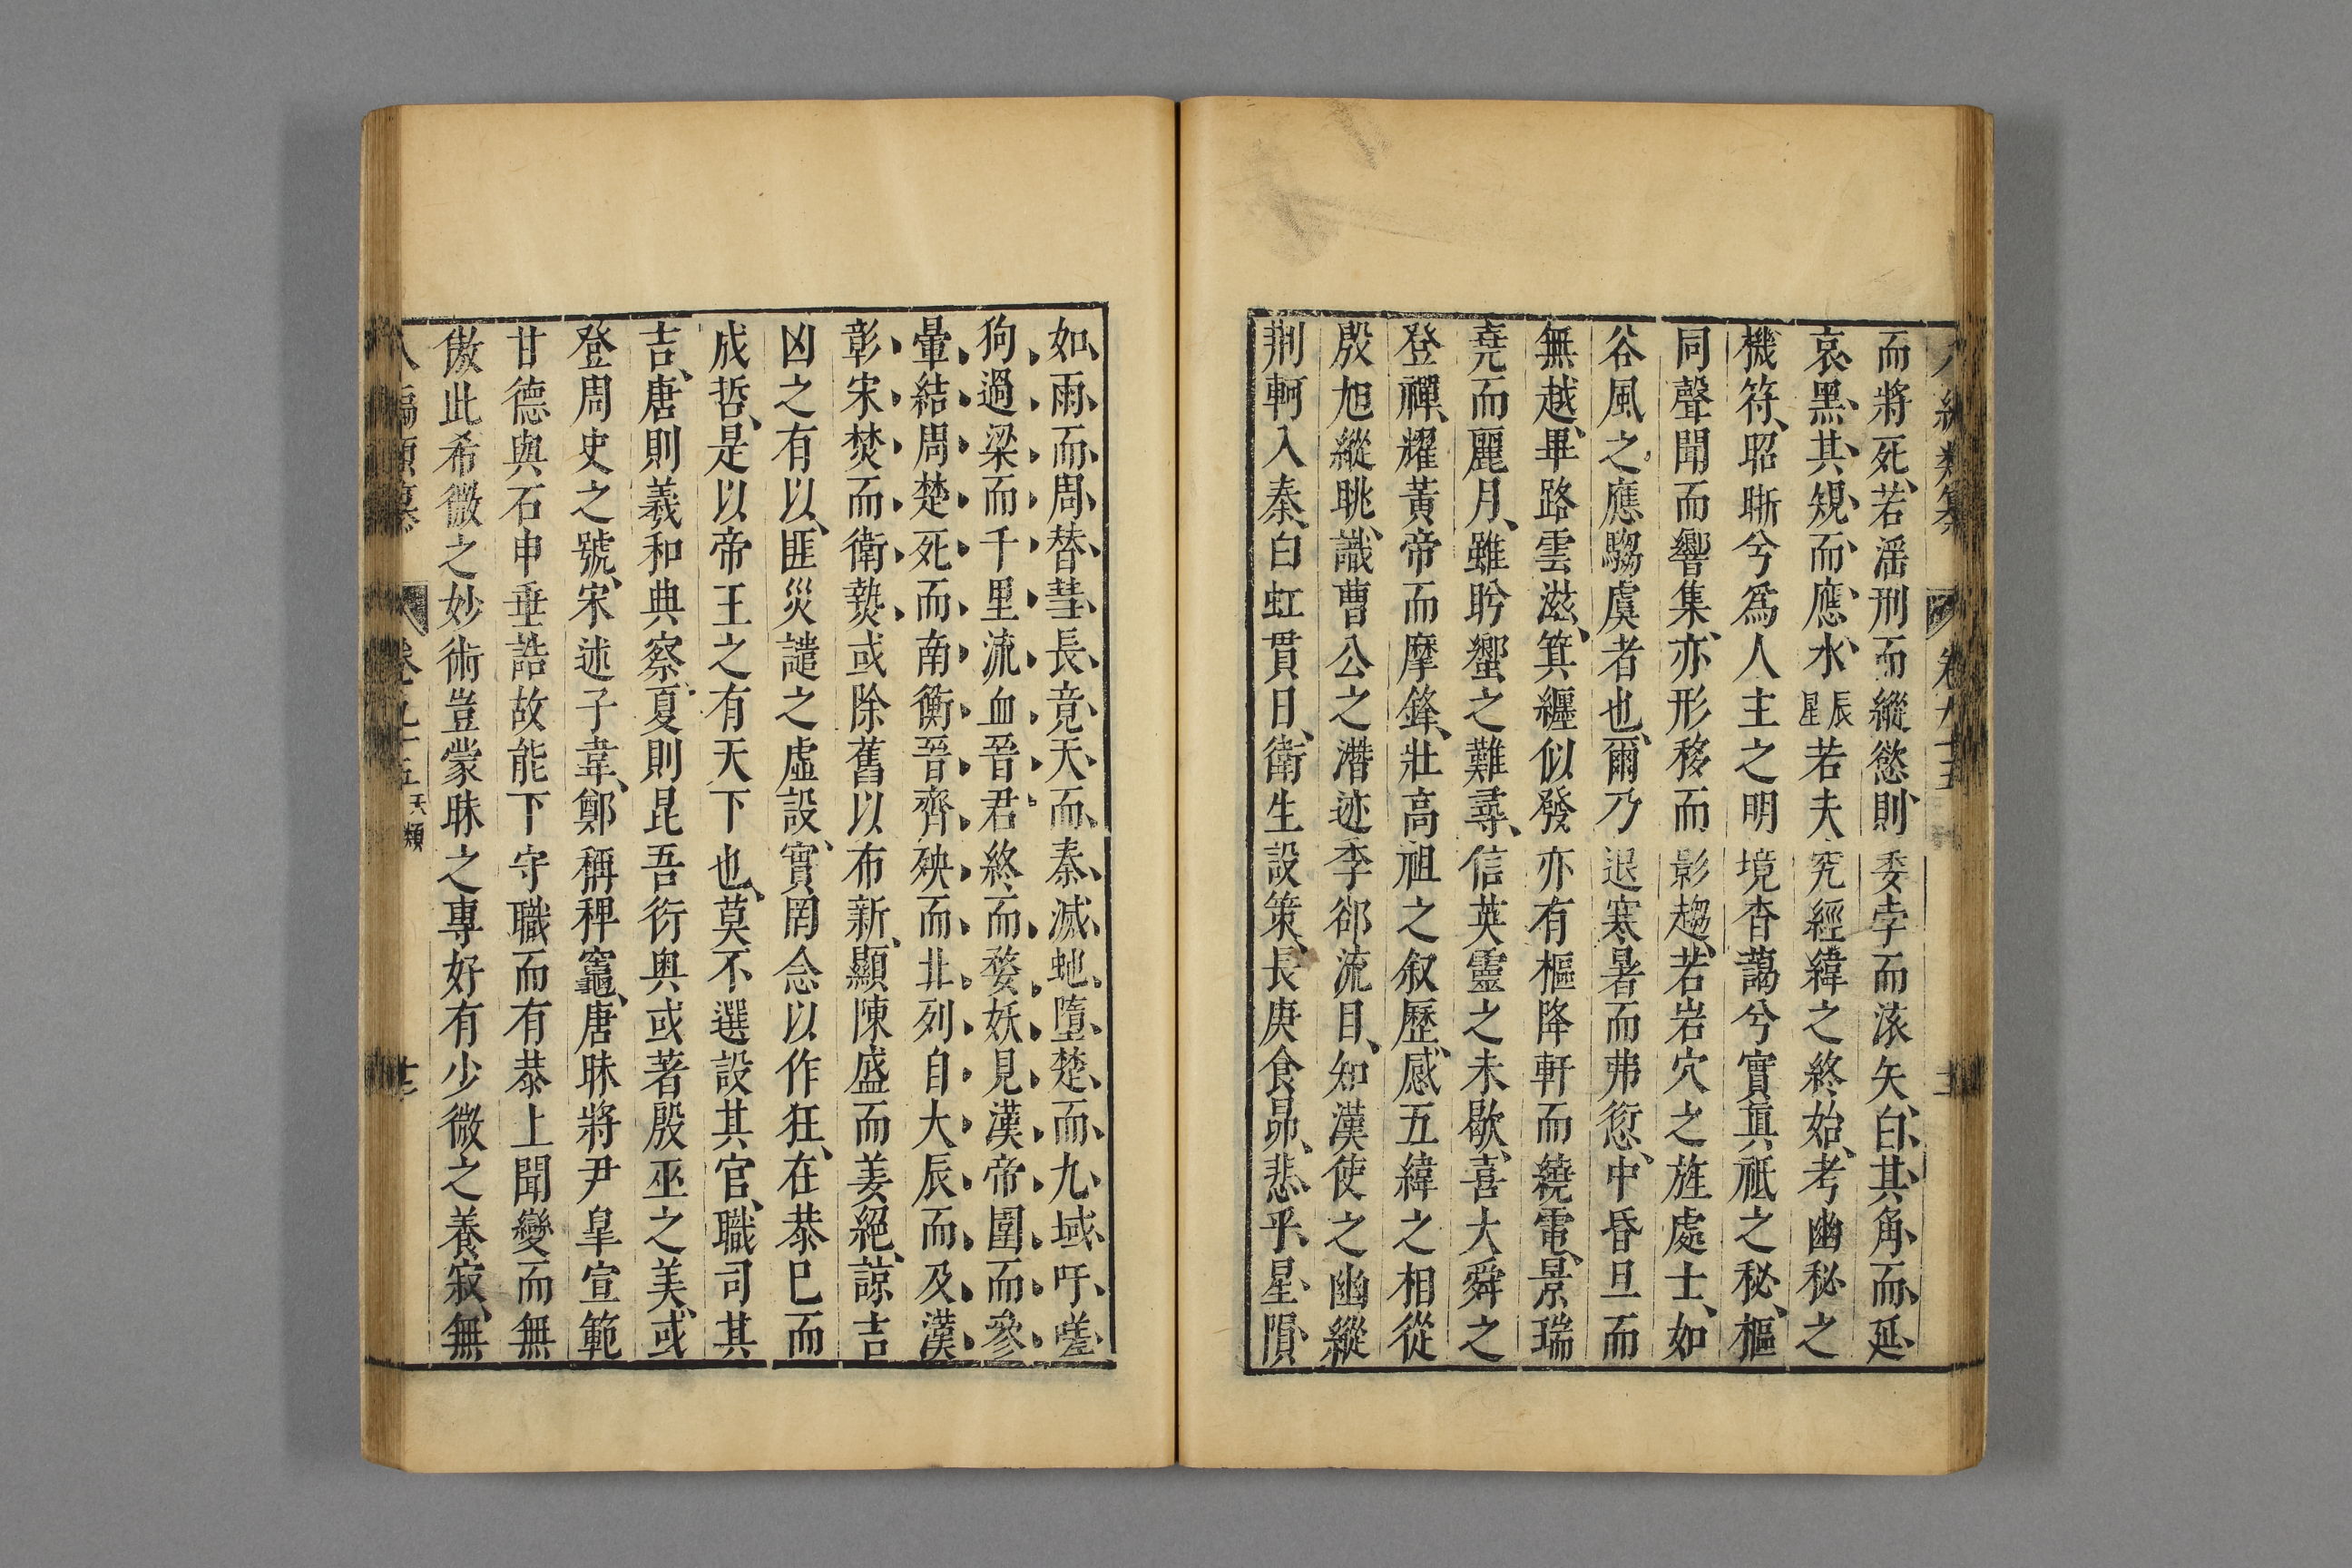 而將死、若滛刑而縱慾、則委孛而滚矢、白其角而延
哀、黑其規而應水辰星若夫究經緯之終始、考幽秘之
機符、昭晣兮爲人主之明境、杳藹兮實眞祗之秘、樞
同聲聞而響集、亦形移而影趨、若岩穴之旌處士、如
谷風之應騶虞者也、爾乃退寒暑而弗愆、中昏旦而
無越、畢路雲滋、箕纒似發亦有樞降軒而繞電、景瑞
堯而麗月、雖肹蠁之難尋、信英靈之未歇、喜大舜之
登禪、耀黃帝而摩鋒、壯高祖之叙歷、感五緯之相從
殷旭縱眺、識曹公之潛迹李郃流目、知漢使之幽縱
荆軻入秦、白虹貫日、衛生設策、長庚食昴、悲乎、星隕
如雨、而周替、彗長竟天、而秦滅、虵墮楚、而九域吁嗟
狗過梁而千里流血、晉君終而婺妖見、漢帝圍而參
暈結、周楚死而南衡、晉齊殃而北列、自大辰而及漢
彰宋焚而衛爇、或除舊以布新、顯陳盛而姜絕、諒吉
凶之有以、匪災譴之虛設、實罔念以作狂、在恭巳而
成哲、是以帝王之有天下也、莫不選設其官、職司其
吉、唐則羲和典察、夏則昆吾衍奥或著殷巫之美、或
登周史之號、宋述子韋、鄭稱稗竈、唐昧將尹皐宣範
甘德與石申垂誥故能下守職而有恭上聞變而無
傲此希微之妙術豈蒙昧之專好有少微之養寂、無
八編類纂 卷九十五 天類